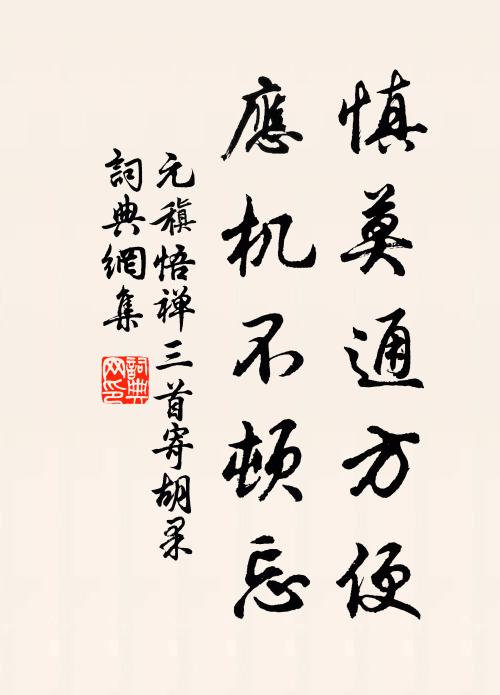 慎莫通方便
應机不頓忘
元稹悟禅三首寄胡果
詞典網集
詞典网印